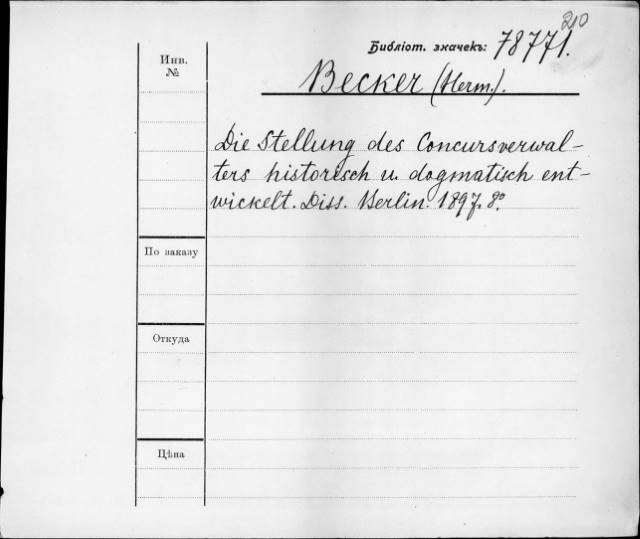 210
Библіот. значекъ: 78771.
Инв.
№
Becker (Herm.).
Die Stellung des Concursverwal-
ters historisch u. dogmatisch ent-
wickelt. Diss. Berlin. 1897. 8º.
По заказу
Откуда
Цѣна